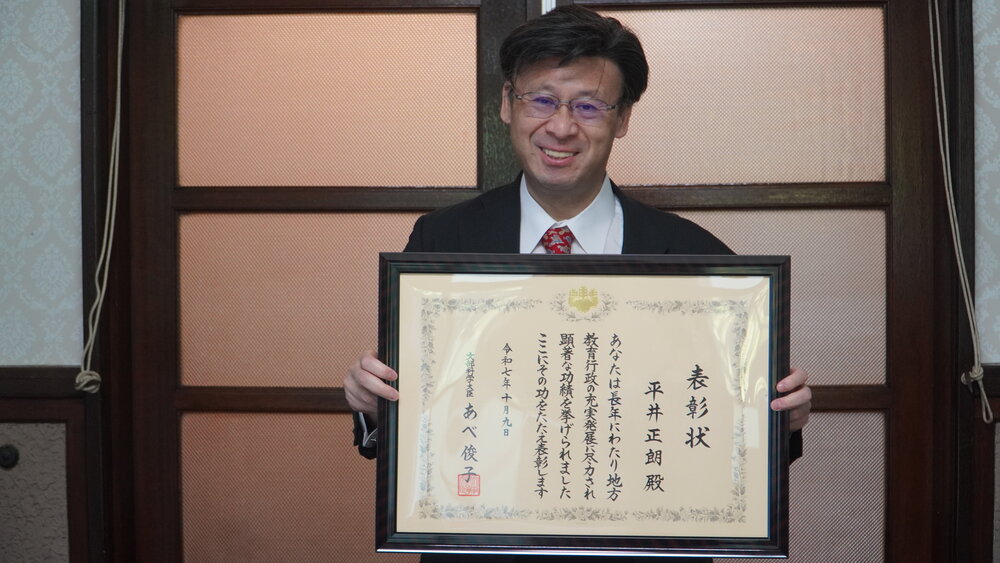 表彰状
平井正朗殿
あなたは長年にわたり地方
教育行政の充実発展に尽力され
顕著な功績を挙げられました
ここにその功をたたえ表彰します
令和七年十月九日
文部科学大臣 あべ俊子